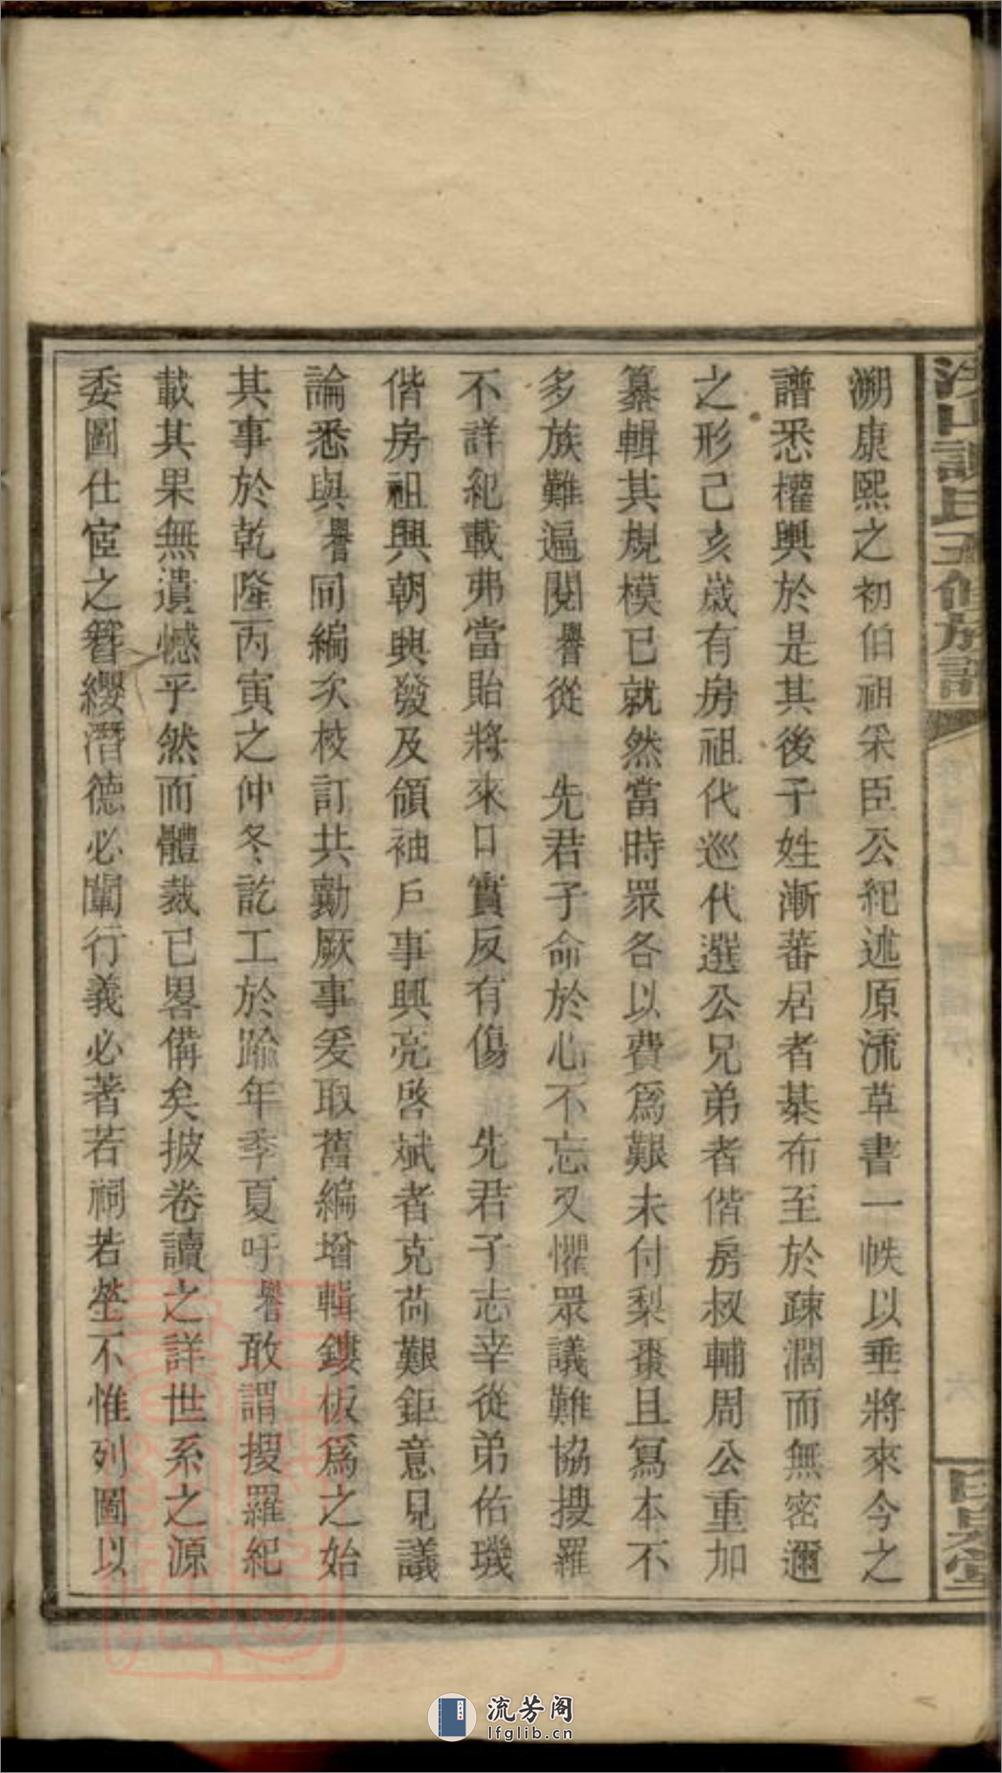 溯康熙之初伯祖采臣公紀述原流草書一帙以垂將來今之
譜悉權輿於是其後子姓漸蕃居者棊布至於疎濶而無密邇
之形己亥歲有房祖代巡代選公兄弟者偕房叔輔周公重加
纂輯其規模已就然當時眾各以費爲艱未付梨棗且寫本不
多族難遍閱譽從 先君子命於心不忘又懼眾議難協搜羅
不詳紀載弗當貽將來口實反有傷 先君子志幸從弟佑璣
偕房祖興朝興發及領袖戶事興亮啓斌者克荷艱鉅意見議
論悉與譽同編次校訂共勷厥事爰取舊編增輯鏤板爲之始
其事於乾隆丙寅之仲冬訖工於踰年季夏吁譽敢謂搜羅紀
載其果無遺憾乎然而體裁已畧備矣披卷讀之詳世系之源
委圖仕宦之簪纓潛德必闡行義必著若祠若塋不惟列圖以
氏五修族譜
六
流芳阁
lfglib.cn